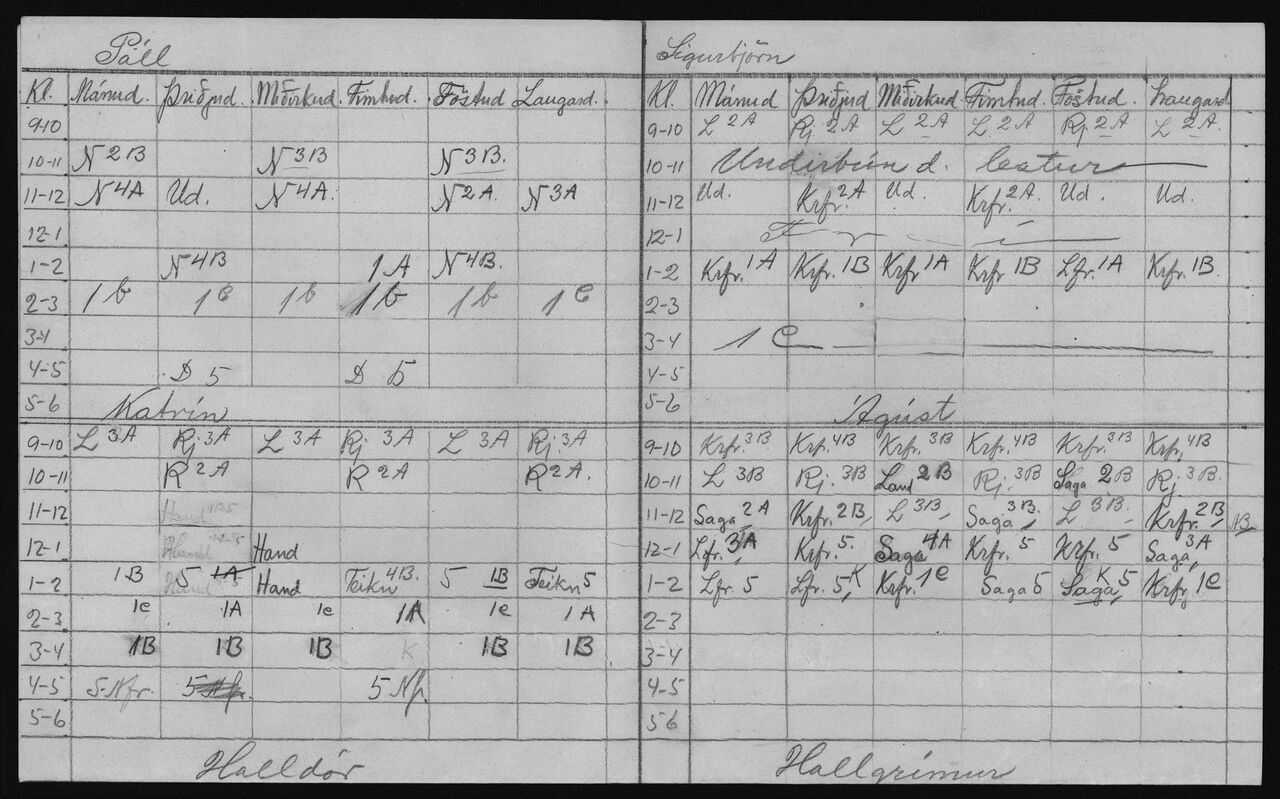 Páll
Kl. Mánud. Þriðjud. Miðvikud. Fimtud. Föstud Laugard.
9-10
10-11 N 2B N 3B N 3B.
11-12 N 4A Ud. N 4A. N 2A. N 3A
12-1
1-2 N 4B 1A N 4B.
2-3 1b 1C 1b 1b 1b 1C
3-4
4-5 D 5 D 5
5-6
Katrín
9-10 L 3A Rj. 3A L 3A Rj 3A L 3A Rj. 3A
10-11 R 2A R 2A R 2A.
11-12 Hand
12-1 Hand Hand
1-2 1B 5 1A Hand Teikn 4B. 5 1B Teikn 5
2-3 1c 1A 1c 1A 1c 1A
3-4 1B 1B 1B K 1B 1B
4-5 5 Nfr. 5 Nfr. 5 Nfr.
5-6
Halldór
Sigurbjörn
Kl. Mánud Þriðjud. Miðvikud Fimtud. Föstud. Laugard
9-10 L 2A Rj. 2A L 2A L 2A Rj. 2A L 2A.
10-11 Undirbún d. lestur
11-12 Ud. Krfr. 2A Ud. Krfr. 2A Ud. Ud.
12-1 F r í
1-2 Krfr. 1A Krfr. 1B Krfr 1A Krfr 1B Lfr. 1A Krfr. 1B.
2-3
3-4 1C
4-5
5-6
Ágúst
9-10 Krfr. 3B Krfr. 4B Krfr. 3B Krfr. 4B Krfr. 3B Krfr. 4B
10-11 L 3B Rj. 3B Land 2B Rj. 3B Saga 2B Rj 3B.
11-12 Saga 2A Krfr. 2B, L 3B, Saga 3B, L 3B, Krfr. 2B, 1B
12-1 Lfr. 3A Krfr. 5. Saga 4A Krfr. 5 Krfr. 5 Saga, 3A
1-2 Lfr. 5 Lfr. 5, K Krfr. 1C Saga 5 Saga, K 5 Krfr. 1C
2-3
3-4
4-5
5-6
Hallgrímur